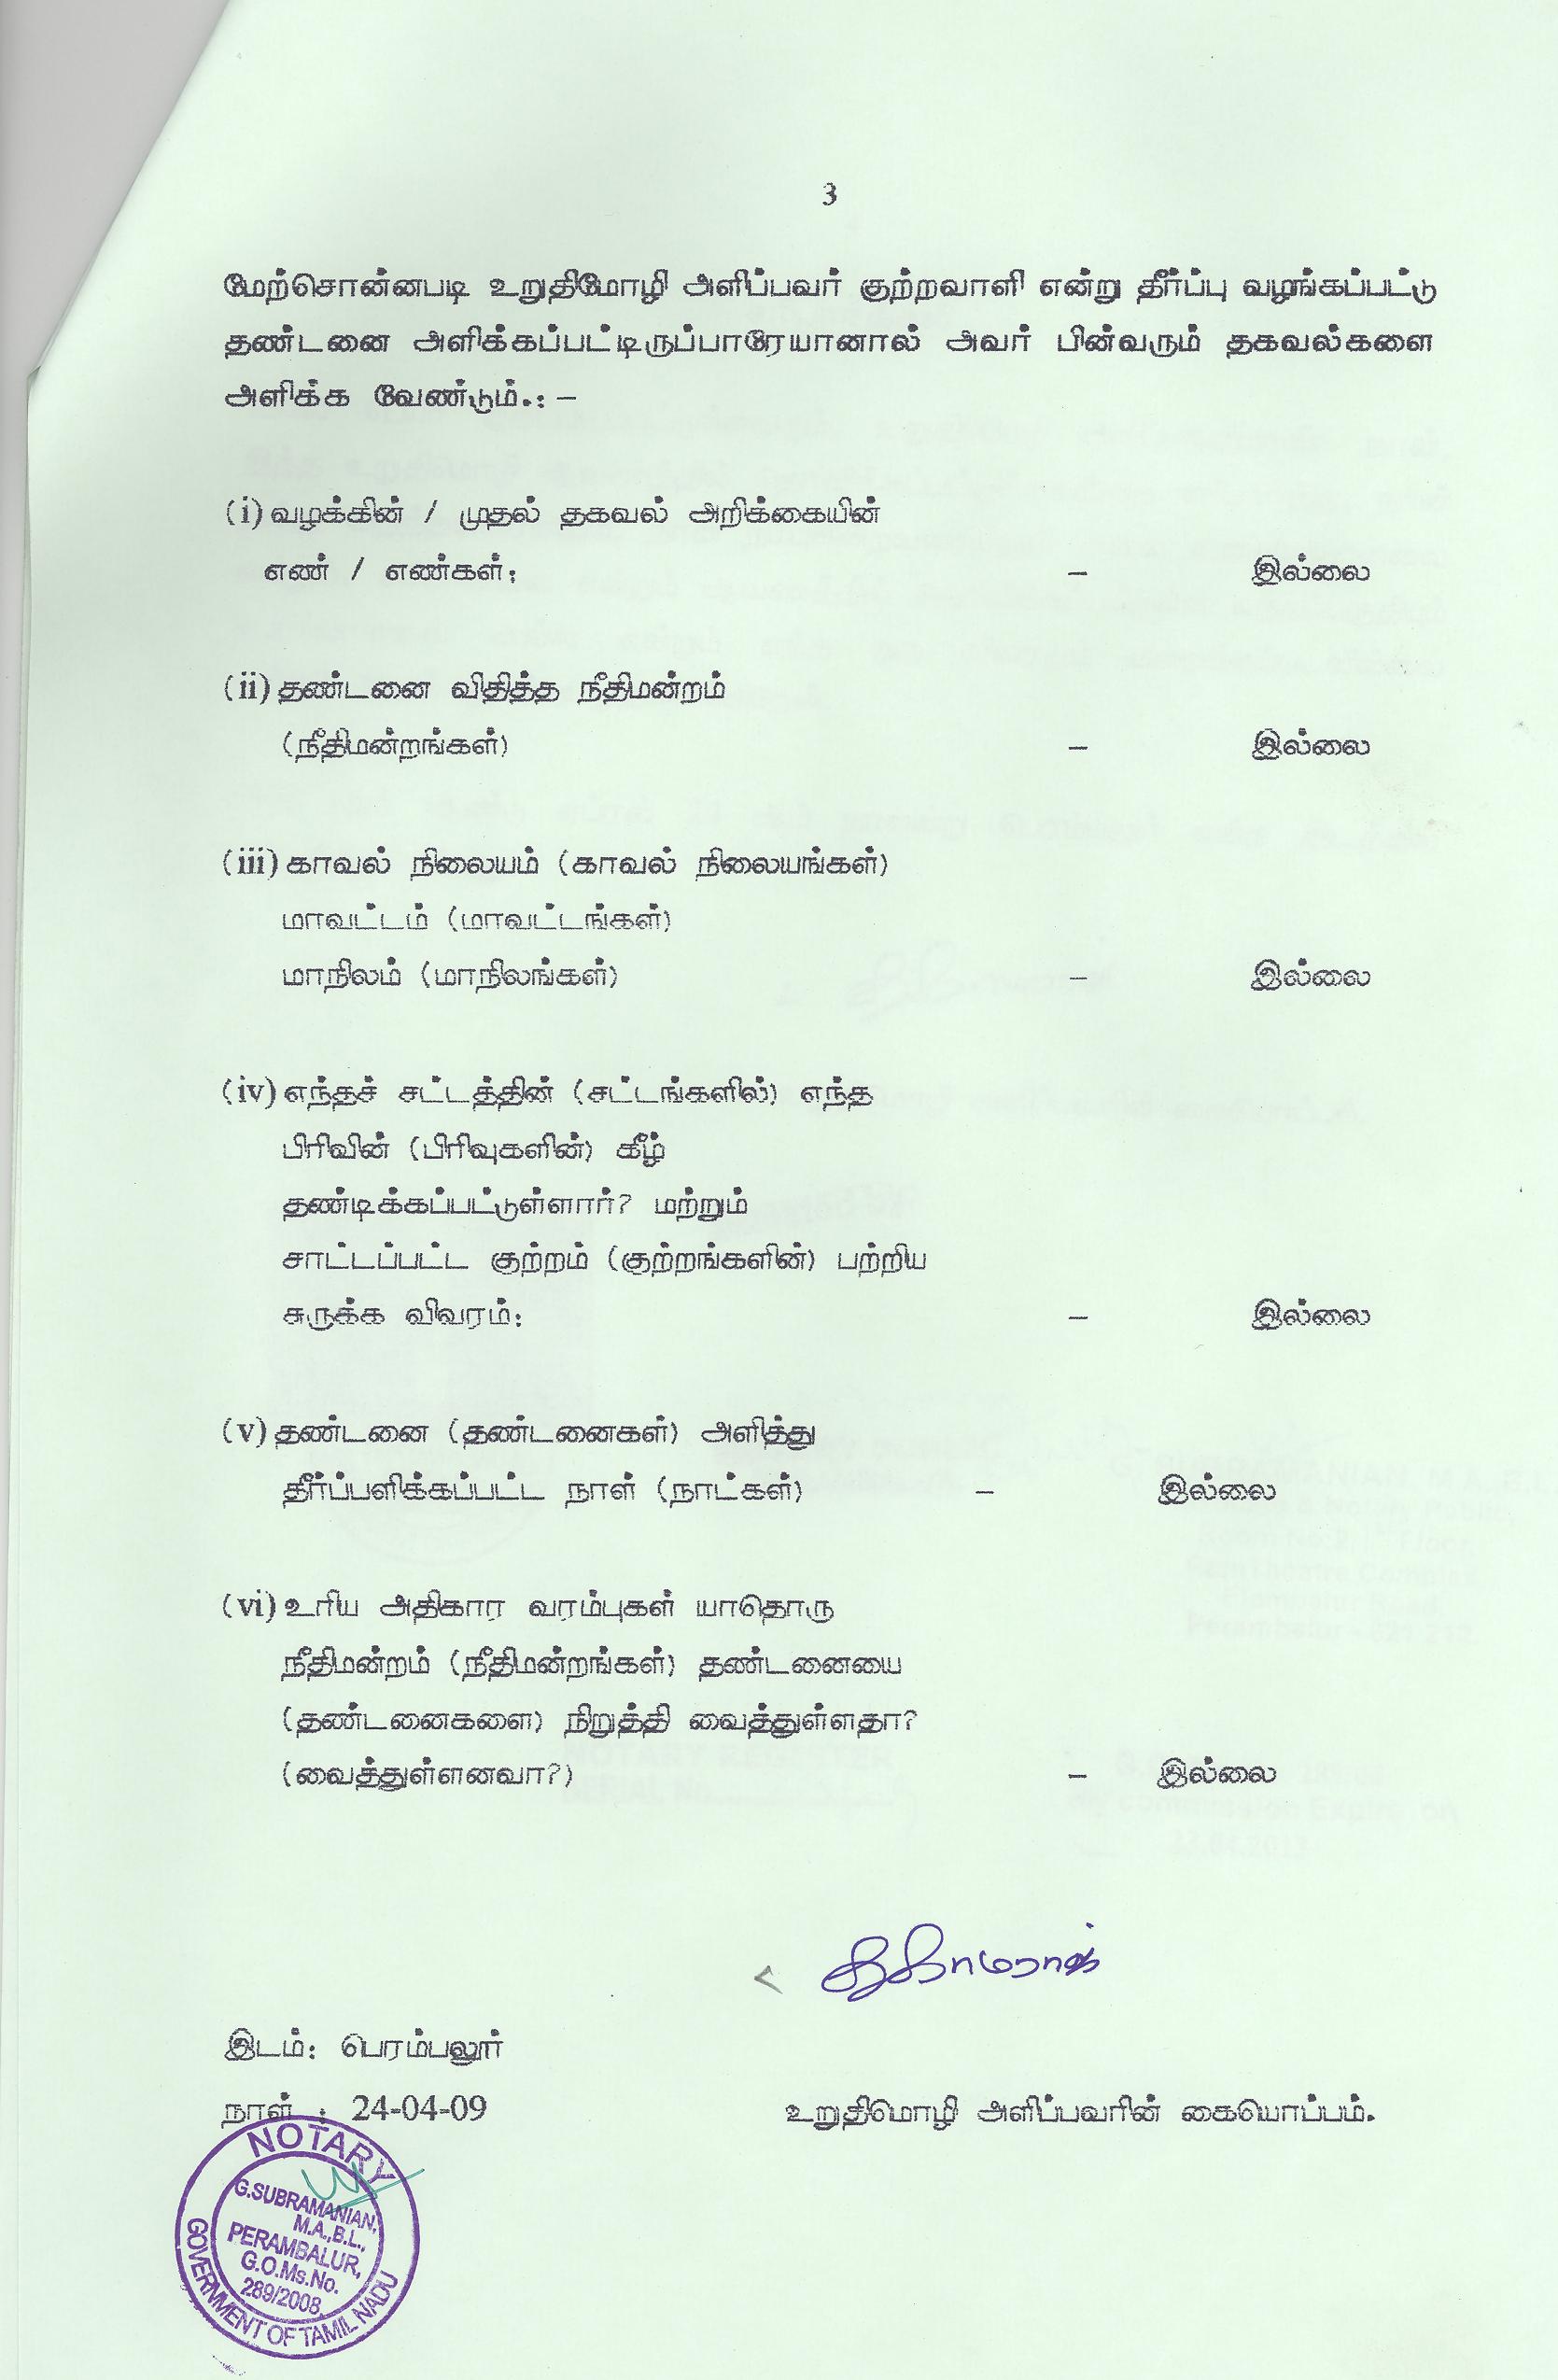 3
மேற்சொன்னபடி உறுதிமோழி அளிப்பவர் குற்றவாளி என்று தீர்ப்பு வழங்கப்பட்டு
தண்டனை அளிக்கப்பட்டிருப்பாரேயானால் அவர் பின்வரும் தகவல்களை
அளிக்க வேண்டும்.:–
(i) வழக்கின் / முதல் தகவல் அறிக்கையின்
எண் / எண்கள்: – இல்லை
(ii) தண்டனை விதித்த நீதிமன்றம்
(நீதிமன்றங்கள்) – இல்லை
(iii) காவல் நிலையம் (காவல் நிலையங்கள்)
மாவட்டம் (மாவட்டங்கள்)
மாநிலம் (மாநிலங்கள்) – இல்லை
(iv) எந்தச் சட்டத்தின் (சட்டங்களில்) எந்த
பிரிவின் (பிரிவுகளின்) கீழ்
தண்டிக்கப்பட்டுள்ளார்? மற்றும்
சாட்டப்பட்ட குற்றம் (குற்றங்களின்) பற்றிய
சுருக்க விவரம்: – இல்லை
(v) தண்டனை (தண்டனைகள்) அளித்து
தீர்ப்பளிக்கப்பட்ட நாள் (நாட்கள்) – இல்லை
(vi) உரிய அதிகார வரம்புகள் யாதொரு
நீதிமன்றம் (நீதிமன்றங்கள்) தண்டனையை
(தண்டனைகளை) நிறுத்தி வைத்துள்ளதா?
(வைத்துள்ளனவா?) – இல்லை
இடம்: பெரம்பலூர்
நாள் : 24-04-09 உறுதிமொழி அளிப்பவரின் கையொப்பம்.
NOTARY
G.SUBRAMANIAN,
M.A.,B.L.,
PERAMBALUR,
G.O.Ms.No.
289/2008,
GOVERNMENT OF TAMIL NADU